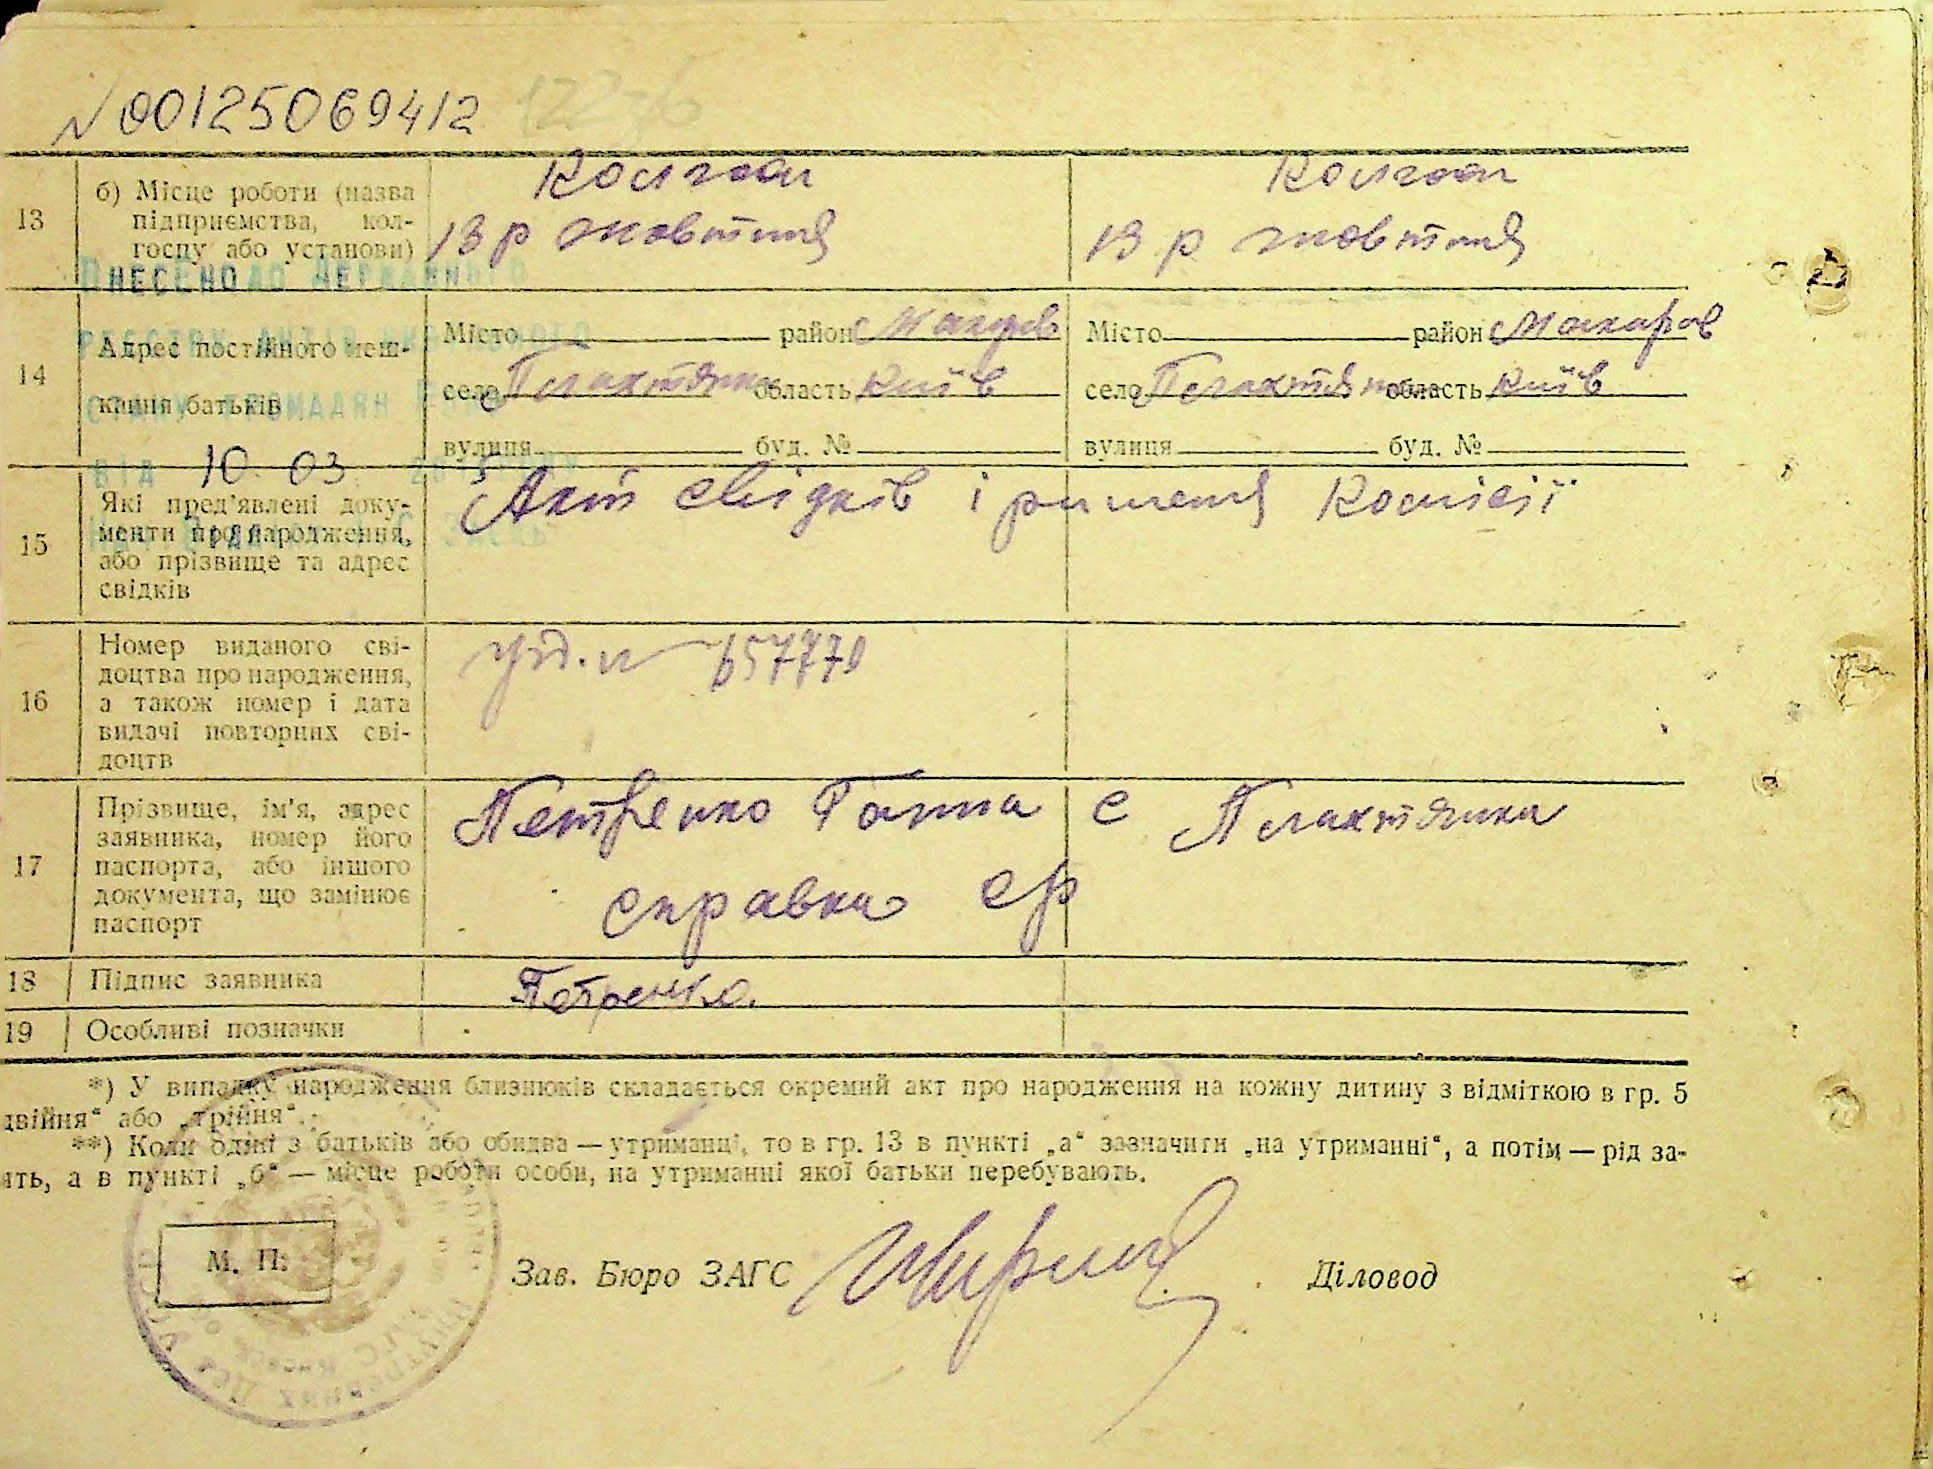 N 00125069412
13 б) Місце роботи (назва підприємства, кол-госпу або установи) Колгосп Колгосп
13 р жовтня 13 р жовтня
Внесено до Державного
реєстру актів цивільного
стану громадян
від 10. 03.
14 Адрес постійного меш-
кання батьків
Місто район Макарів Місто район Макаров
село Плахтянка область Київ село Плахтянка область Київ
вулиця буд. № вулиця буд. №
15 Які пред'явлені доку-
менти про народження,
або прізвище та адрес
свідків
Акт свідків і рішення Комісії
16 Номер виданого сві-
доцтва про народження,
а також номер і дата
видачі повторних сві-
доцтв
657770
17 Прізвище, ім'я, адрес
заявника, номер його
паспорта, або іншого
документа, що замінює
паспорт
Петренко Ганна с Плахтянка
справка ср
18 Підпис заявника Петренко.
19 Особливі позначки
*) У випадку народження близнюків складається окремий акт про народження на кожну дитину з відміткою в гр. 5
двійня“ або „трійня“.
**) Коли один з батьків або обидва — утриманці, то в гр. 13 в пункті „а“ зазначити „на утриманні“, а потім — рід за-
ять, а в пункті „б“ — місце роботи особи, на утриманні якої батьки перебувають.
М. П.
Зав. Бюро ЗАГС Діловод